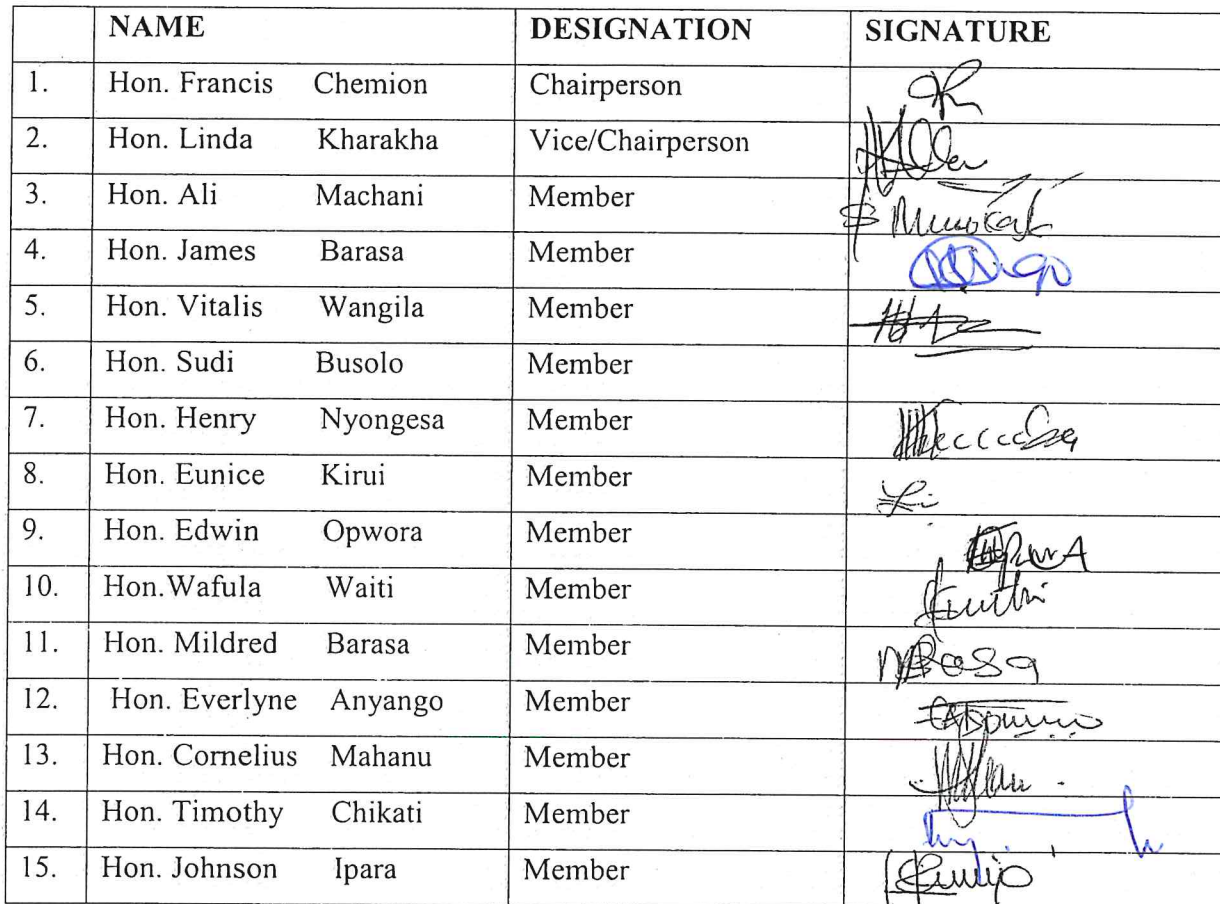 NAME DESIGNATION SIGNATURE
1. Hon. Francis Chemion Chairperson
2. Hon. Linda Kharakha Vice/Chairperson
3. Hon. Ali Machani Member
4. Hon. James Barasa Member
5. Hon. Vitalis Wangila Member
6. Hon. Sudi Busolo Member
7. Hon. Henry Nyongesa Member
8. Hon. Eunice Kirui Member
9. Hon. Edwin Opwora Member
10. Hon.Wafula Waiti Member
11. Hon. Mildred Barasa Member
12. Hon. Everlyne Anyango Member
13. Hon. Cornelius Mahanu Member
14. Hon. Timothy Chikati Member
15. Hon. Johnson Ipara Member